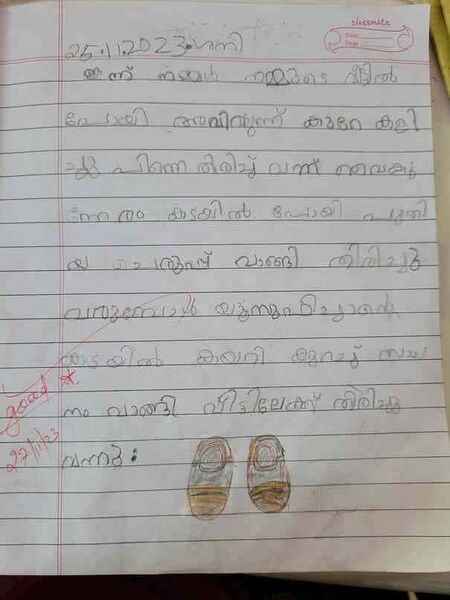 classmate
Date
Page
25.11.2023.ശനി
ഇന്ന് ഞങ്ങൾ എമ്മുടെ വീട്ടിൽ
പോയി അവിടുന്ന് കുറേ കളി
ച്ചു പിന്നെ തിരിച്ച് വന്ന് വൈകു
ന്നേരം കടയിൽ പോയി പുതി
യ ചെരുപ്പ് വാങ്ങി തിരിച്ചു
വരുമ്പോൾ
കടയിൽ കയറി കുറച്ച് സാധ
നം വാങ്ങി വീട്ടിലേക്ക് തിരിച്ചു
വന്നു:
good
27/11/23